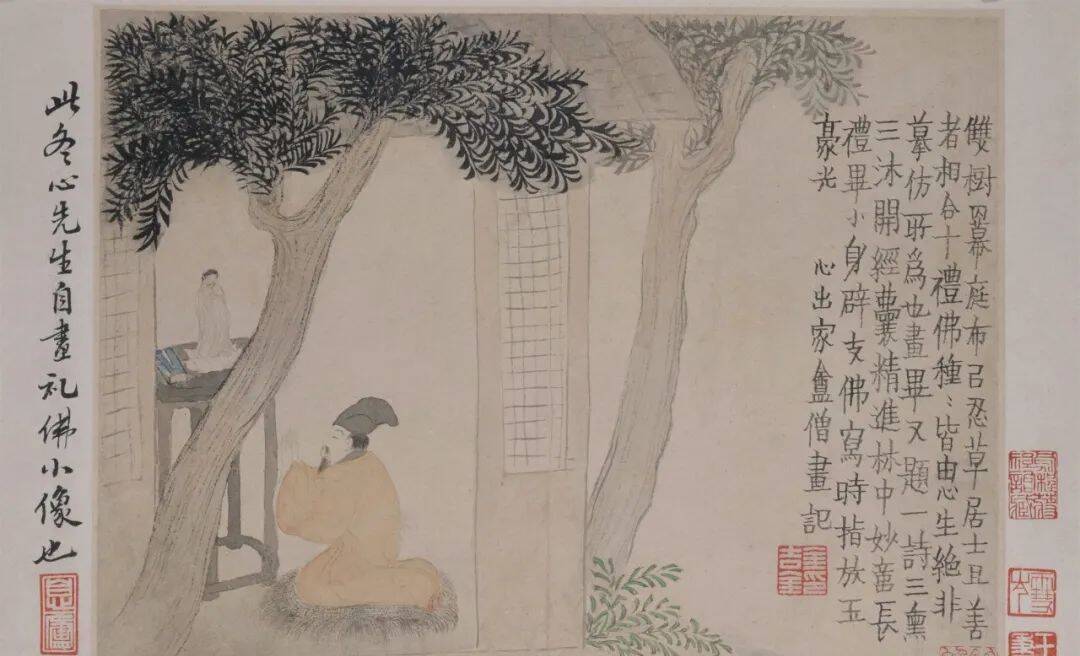 雙樹羃庭布㠯忍草居士且善
者相合十禮佛種〻皆由生絕非
摹仿所爲也畫畢又題一詩三熏
三沐開經囊精進林中妙長
禮畢小身辟支佛寫時指放五
豪光　心出家盦僧畫記
此冬心先生自畫礼佛小像也